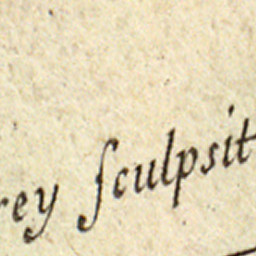 rey ſculpsit